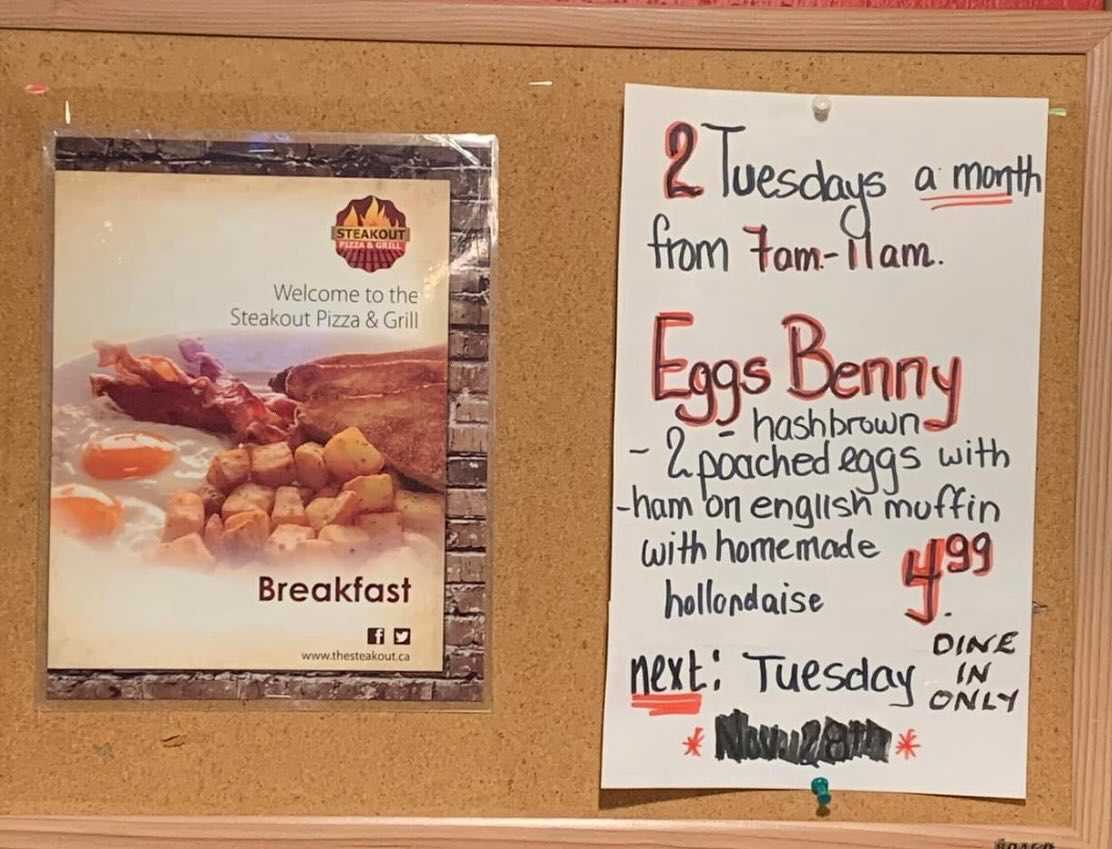 STEAKOUT
PIZZA & GRILL
Welcome to the
Steakout Pizza & Grill
Breakfast
www.thesteakout.ca
2 Tuesdays a month
from 7am-11am.
Eggs Benny
- hashbrown
- 2 poached eggs with
-ham on english muffin
with homemade
hollondaise
4.99
DINE
IN
ONLY
next: Tuesday
* Nov. 28th *